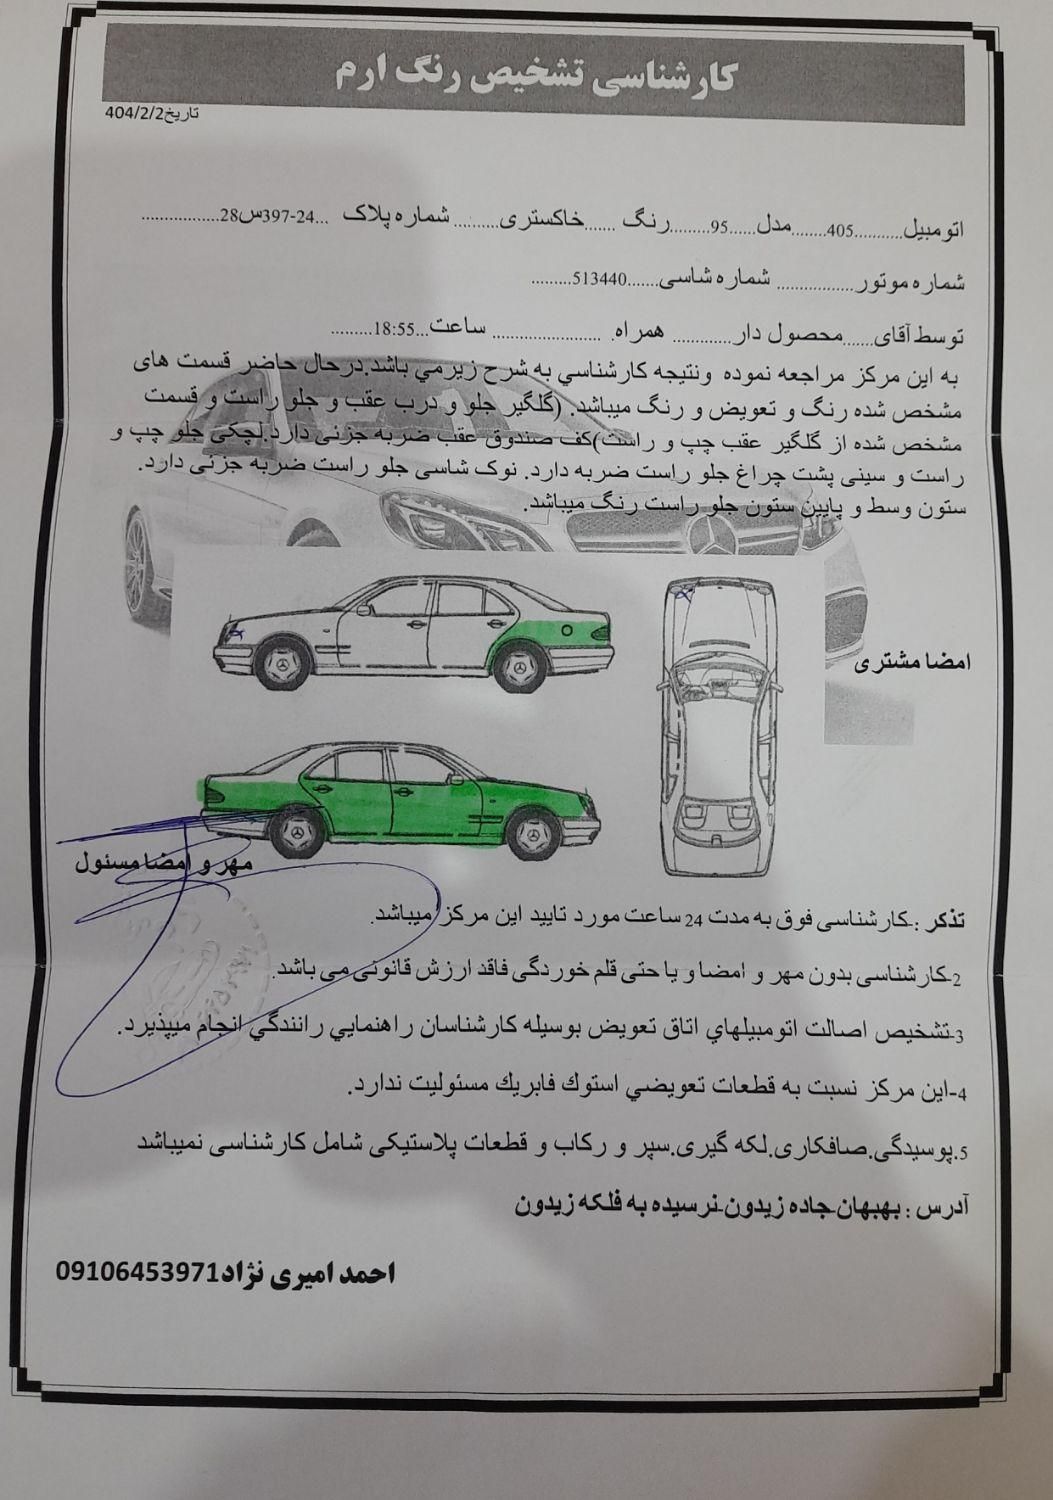 کارشناسی تشخیص رنگ ارم
تاریخ404/2/2
اتومبیل...........405........مدل......95.........رنگ .......خاکستری........... شماره پلاک ...24-397س28.................
شماره موتور................. شماره شاسی.......513440.........
توسط آقای......محصول دار............. همراه. ........................ ساعت...18:55.........
به این مرکز مراجعه نموده ونتیجه کارشناسي به شرح زیرمي باشد.درحال حاضر قسمت های
مشخص شده رنگ و تعویض و رنگ میباشد. (گلگیر جلو و درب عقب و جلو راست و قسمت
مشخص شده از گلگیر عقب چپ و راست)کف صندوق عقب ضربه جزئی دارد.لچکی جلو چپ و
راست و سینی پشت چراغ جلو راست ضربه دارد. نوک شاسی جلو راست ضربه جزئی دارد.
ستون وسط و پایین ستون جلو راست رنگ میباشد.
امضا مشتری
مهر و امضا مسئول
تذکر :-کارشناسی فوق به مدت 24 ساعت مورد تایید این مرکز میباشد.
2-کارشناسی بدون مهر و امضا و یا حتی قلم خوردگی فاقد ارزش قانونی می باشد.
3-تشخیص اصالت اتومبیلهاي اتاق تعویض بوسیله کارشناسان راهنمایي رانندگي انجام میپذیرد.
4-این مرکز نسبت به قطعات تعویضي استوك فابریك مسئولیت ندارد.
5.پوسیدگی.صافکاری.لکه گیری.سپر و رکاب و قطعات پلاستیکی شامل کارشناسی نمیباشد
آدرس : بهبهان-جاده زیدون-نرسیده به فلکه زیدون
احمد امیری نژاد09106453971